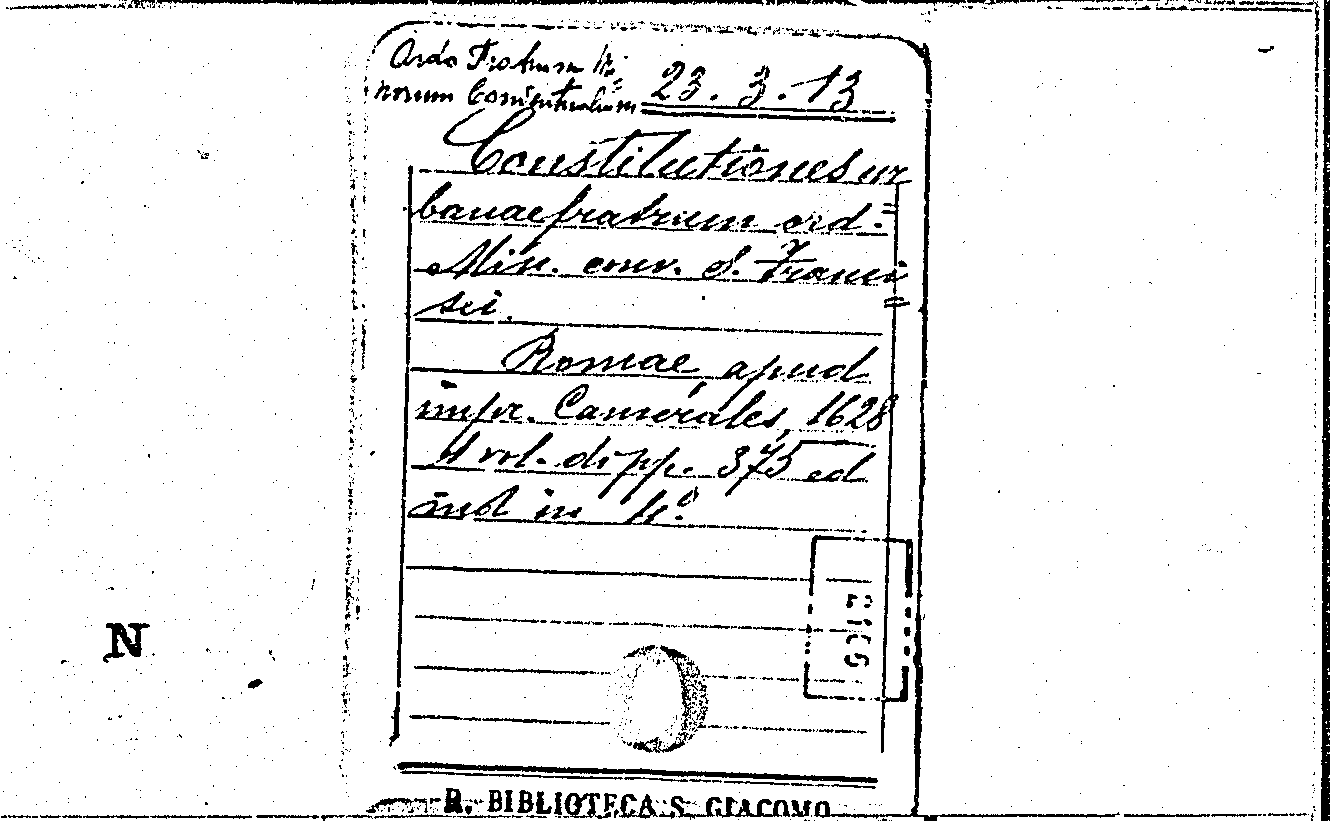 Ordo Fratrum Mi=
norum Conventualium 23. 3. 13
Constitutiones ur
=
banae fratrum ord.
Min. conv. S. Franci
=
sci.
Romae, apud
impr. Camerales, 1628
1 vol. di pp. 375 ed
ind in 4°.
N
R. BIBLIOTECA S. GIACOMO